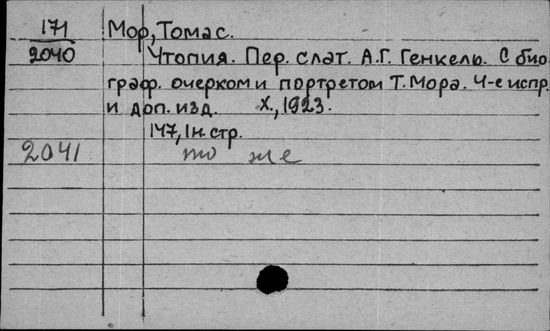 171 Мор, Томас.
2040 Утопия. Пер. с лат. А.Г. Генкель. С био-
граф. очерком и портретом Т. Мора. 4-е испр.
и доп. изд. Х., 1923.
147, 1 н. стр.
2041 то же